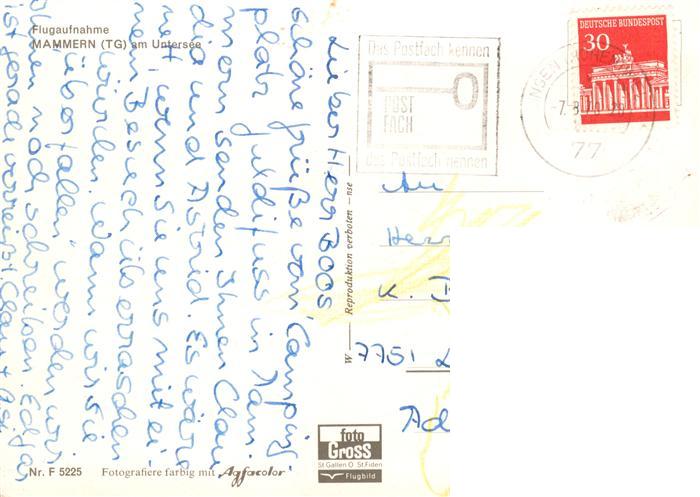 Flugaufnahme
MAMMERN (TG) am Untersee
Lieber Herr Boos,
schöne Grüße vom Camping-
platz in Mam-
mern senden Ihnen Clau
dia und Astrid. Es wäre
nett wenn Sie uns mit ei
nem Besuch überraschen
würden. Wann wir Sie
"überfallen" werden wir
Ihnen noch schreiben. Edgar
ist gerade verreist.
W — Reproduktion verboten - nse
Das Postfach kennen
POST
FACH
das Postfach nennen
DEUTSCHE BUNDESPOST
30
77
An
Herr
K.
7751
Ad
foto
Gross
St Gallen O St.Fiden
Flugbild
Nr. F 5225 Fotografiere farbig mit Agfacolor